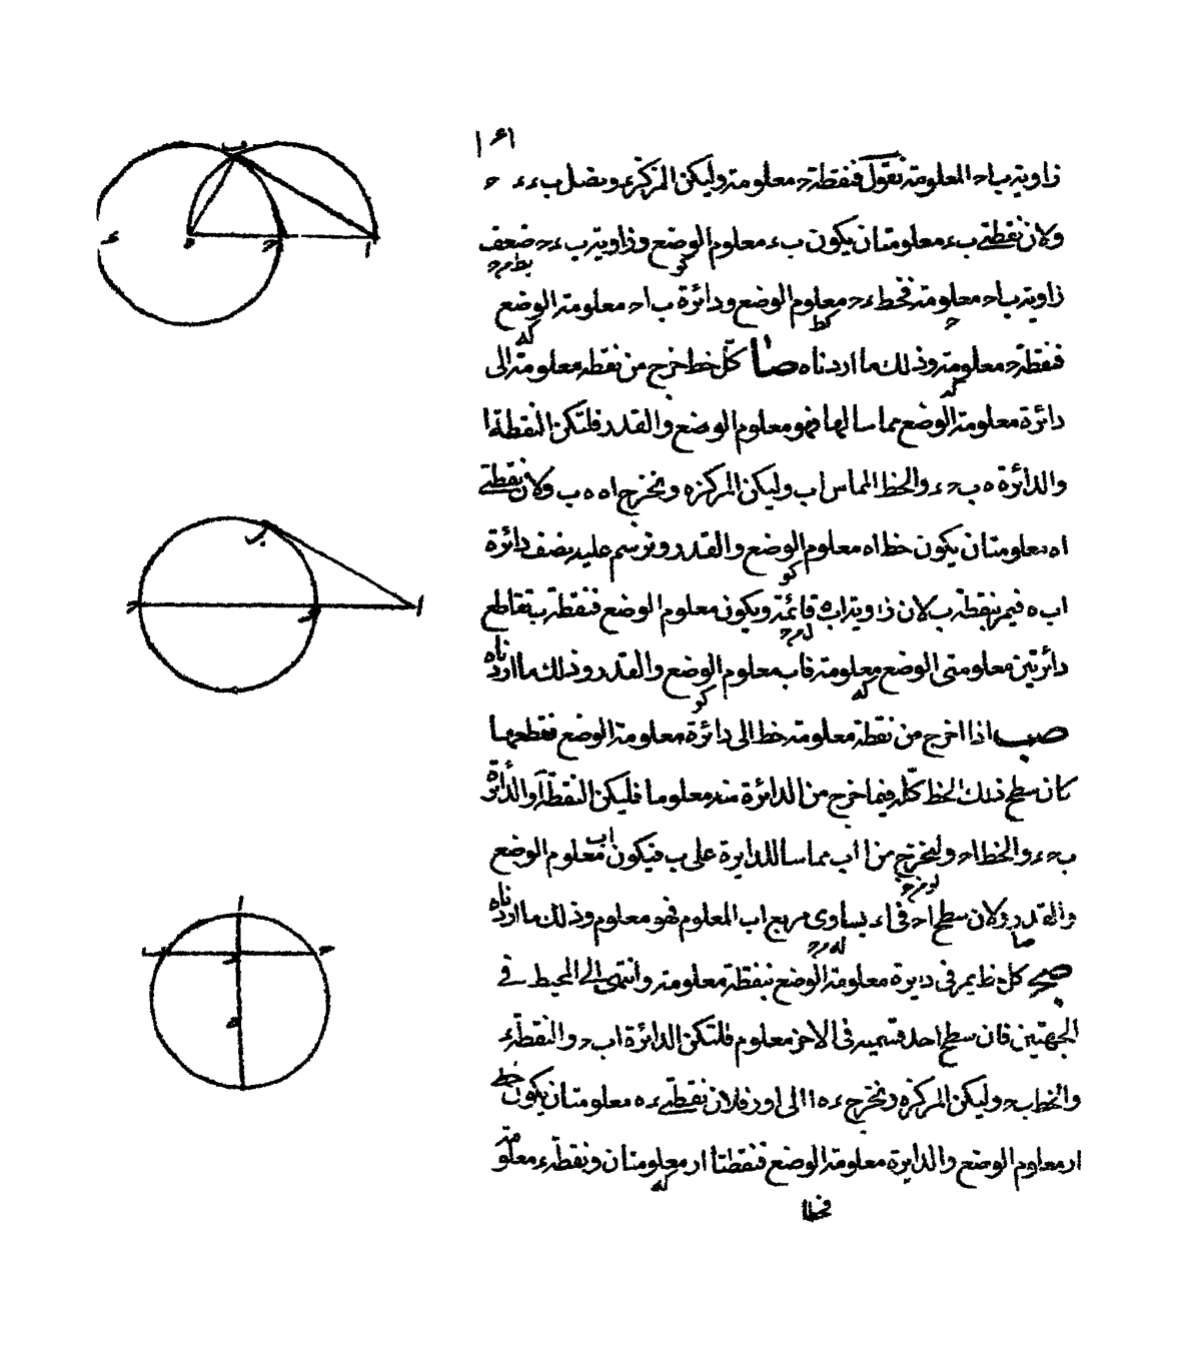 زاوية ب ا ح المعلومة نقول فنقطة ح معلومة وليكن المركز ه ونصل ب ء ء ح
ولان نقطتي ب ء معلومتان يكون ب ء معلوم الوضع وزاوية ب ء ح ضعف
زاوية ب ا ح معلومة فخط ء ح معلوم الوضع ودائرة ب ا ح معلومة الوضع
فنقطة ح معلومة وذلك ما اردناه صا كل خط خرج من نقطة معلومة الى
دائرة معلومة الوضع مماسا لها فهو معلوم الوضع والقدر فلتكن النقطة ا
والدائرة ه ب ح ء والخط المماس اب وليكن المركز ه ونخرج اه ه ب ولان نقطتي
اه معلومتان يكون خط اه معلوم الوضع والقدر ونرسم عليه نصف دائرة
اب ه فيمر بنقطة ب لان زاوية اب ه قائمة ويكون معلوم الوضع فنقطة ب تقاطع
دائرتين معلومتى الوضع معلومة فاب معلوم الوضع والقدر وذلك ما اردناه
صب اذا اخرج من نقطة معلومة خط الى دائرة معلومة الوضع فقطعها
كان سطح ذلك الخط كله فيما خرج من الدائرة منه معلوما فليكن النقطة ا والدائرة
ب ح ء والخط ا ح وليخرج من ا اب مماسا للدايرة على ب فيكون اب معلوم الوضع
والقدر ولان سطح ا ح فى ا ء يساوى مربع اب المعلوم فهو معلوم وذلك ما اردناه
صج كل خط يمر فى دايرة معلومة الوضع بنقطة معلومة وانتهى الى المحيط في
الجهتين فان سطح احد قسميه فى الاخر معلوم فلتكن الدائرة اب ح والنقطة ء
والخط ب ح وليكن المركز ه ونخرج ء ه الى ا و ز فلان نقطتي ء ه معلومتان يكون خط
ا ز معلوم الوضع والدايرة معلومة الوضع فنقطتا ا ز معلومتان ونقطة ء معلومة
فخطا